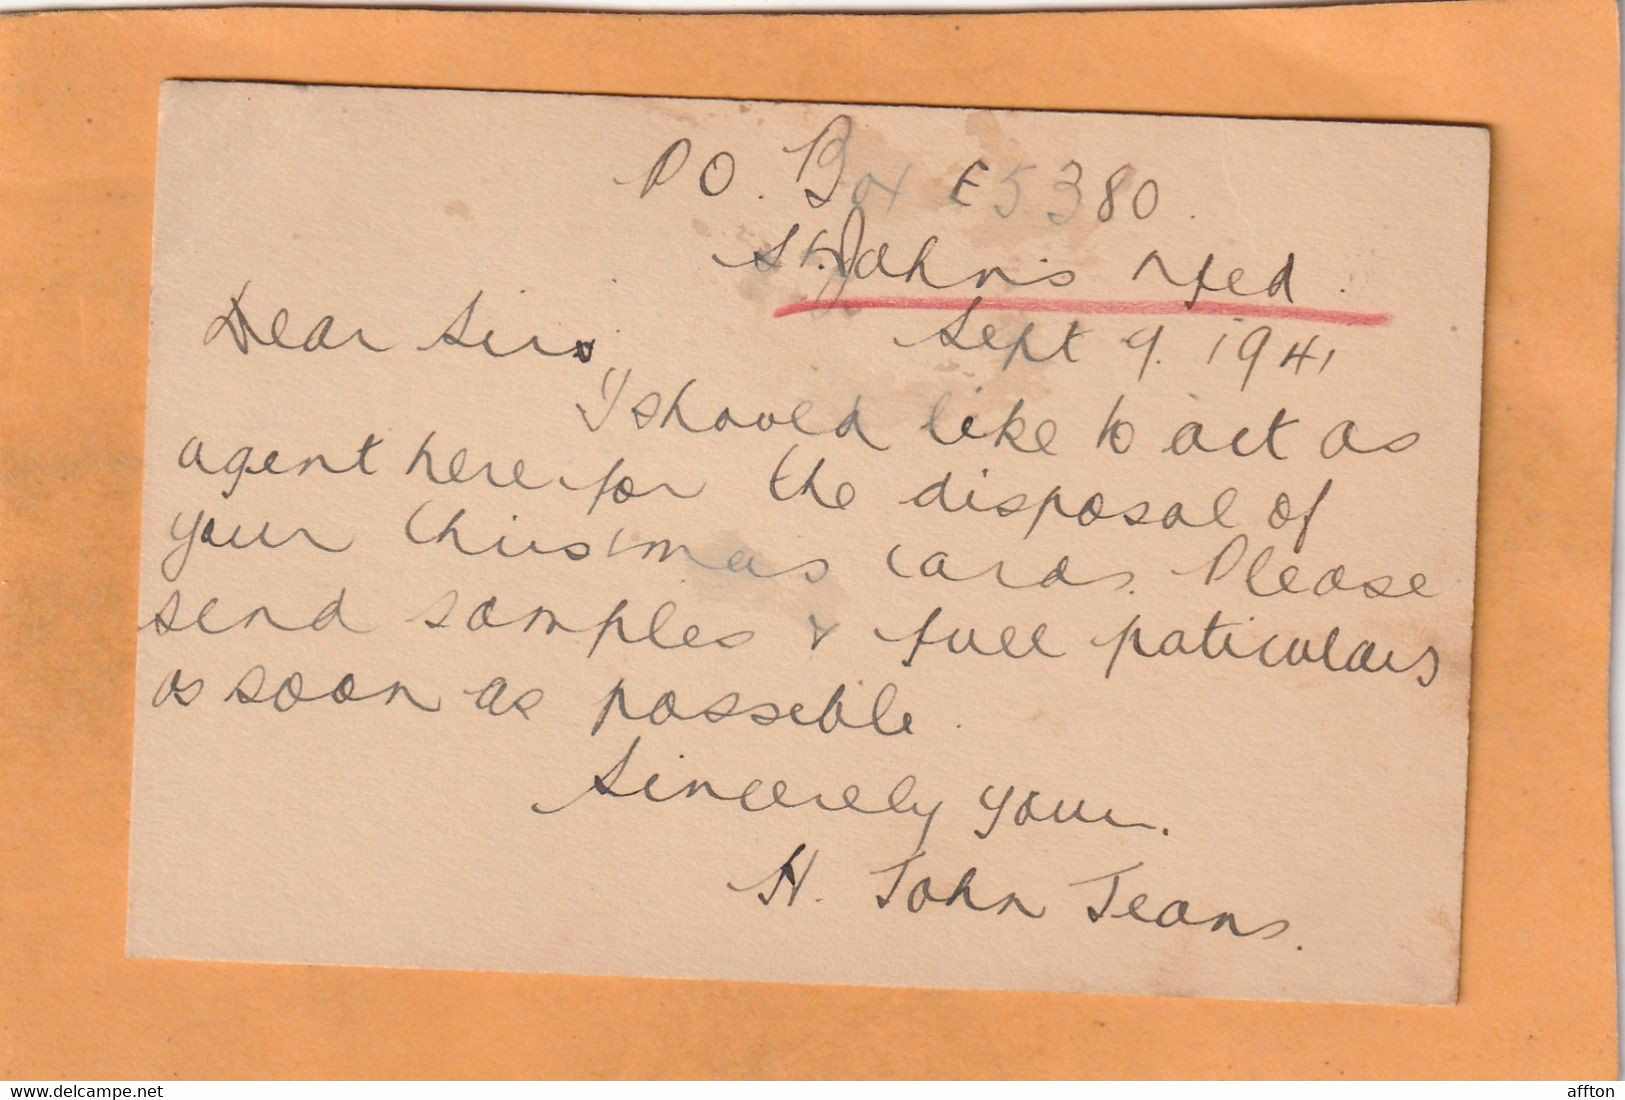 PO. Box E5380.
St. John's Nfed.
Sept 9. 1941
Dear Sirs,
I should like to act as
agent here for the disposal of
your Christmas cards. Please
send samples & full paticulars
as soon as possible.
Sincerely your.
H. John Jeans.
www.delcampe.net
affton